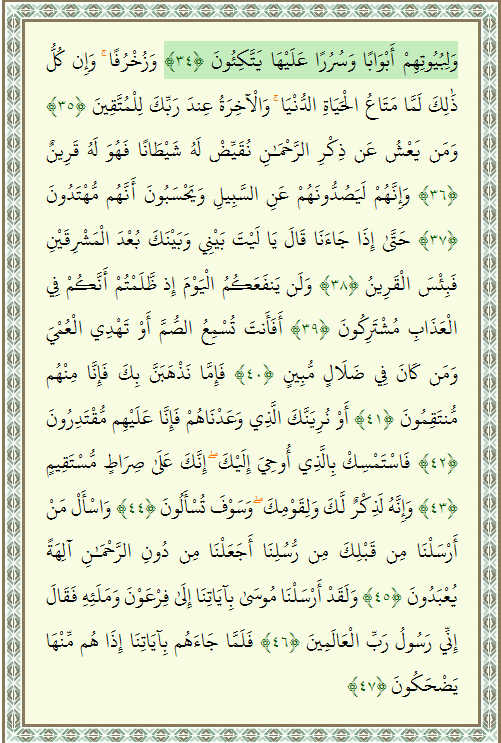 وَلِبُيُوتِهِمْ أَبْوَابًا وَسُرُرًا عَلَيْهَا يَتَّكِئُونَ ﴿٣٤﴾ وَزُخْرُفًا ۚ وَإِن كُلُّ
ذَٰلِكَ لَمَّا مَتَاعُ الْحَيَاةِ الدُّنْيَا ۚ وَالْآخِرَةُ عِندَ رَبِّكَ لِلْمُتَّقِينَ ﴿٣٥﴾
وَمَن يَعْشُ عَن ذِكْرِ الرَّحْمَـٰنِ نُقَيِّضْ لَهُ شَيْطَانًا فَهُوَ لَهُ قَرِينٌ
﴿٣٦﴾ وَإِنَّهُمْ لَيَصُدُّونَهُمْ عَنِ السَّبِيلِ وَيَحْسَبُونَ أَنَّهُم مُّهْتَدُونَ
﴿٣٧﴾ حَتَّىٰ إِذَا جَاءَنَا قَالَ يَا لَيْتَ بَيْنِي وَبَيْنَكَ بُعْدَ الْمَشْرِقَيْنِ
فَبِئْسَ الْقَرِينُ ﴿٣٨﴾ وَلَن يَنفَعَكُمُ الْيَوْمَ إِذ ظَّلَمْتُمْ أَنَّكُمْ فِي
الْعَذَابِ مُشْتَرِكُونَ ﴿٣٩﴾ أَفَأَنتَ تُسْمِعُ الصُّمَّ أَوْ تَهْدِي الْعُمْيَ
وَمَن كَانَ فِي ضَلَالٍ مُّبِينٍ ﴿٤٠﴾ فَإِمَّا نَذْهَبَنَّ بِكَ فَإِنَّا مِنْهُم
مُّنتَقِمُونَ ﴿٤١﴾ أَوْ نُرِيَنَّكَ الَّذِي وَعَدْنَاهُمْ فَإِنَّا عَلَيْهِم مُّقْتَدِرُونَ
﴿٤٢﴾ فَاسْتَمْسِكْ بِالَّذِي أُوحِيَ إِلَيْكَ ۖ إِنَّكَ عَلَىٰ صِرَاطٍ مُّسْتَقِيمٍ
﴿٤٣﴾ وَإِنَّهُ لَذِكْرٌ لَّكَ وَلِقَوْمِكَ ۖ وَسَوْفَ تُسْأَلُونَ ﴿٤٤﴾ وَاسْأَلْ مَنْ
أَرْسَلْنَا مِن قَبْلِكَ مِن رُّسُلِنَا أَجَعَلْنَا مِن دُونِ الرَّحْمَـٰنِ آلِهَةً
يُعْبَدُونَ ﴿٤٥﴾ وَلَقَدْ أَرْسَلْنَا مُوسَىٰ بِآيَاتِنَا إِلَىٰ فِرْعَوْنَ وَمَلَئِهِ فَقَالَ
إِنِّي رَسُولُ رَبِّ الْعَالَمِينَ ﴿٤٦﴾ فَلَمَّا جَاءَهُم بِآيَاتِنَا إِذَا هُم مِّنْهَا
يَضْحَكُونَ ﴿٤٧﴾